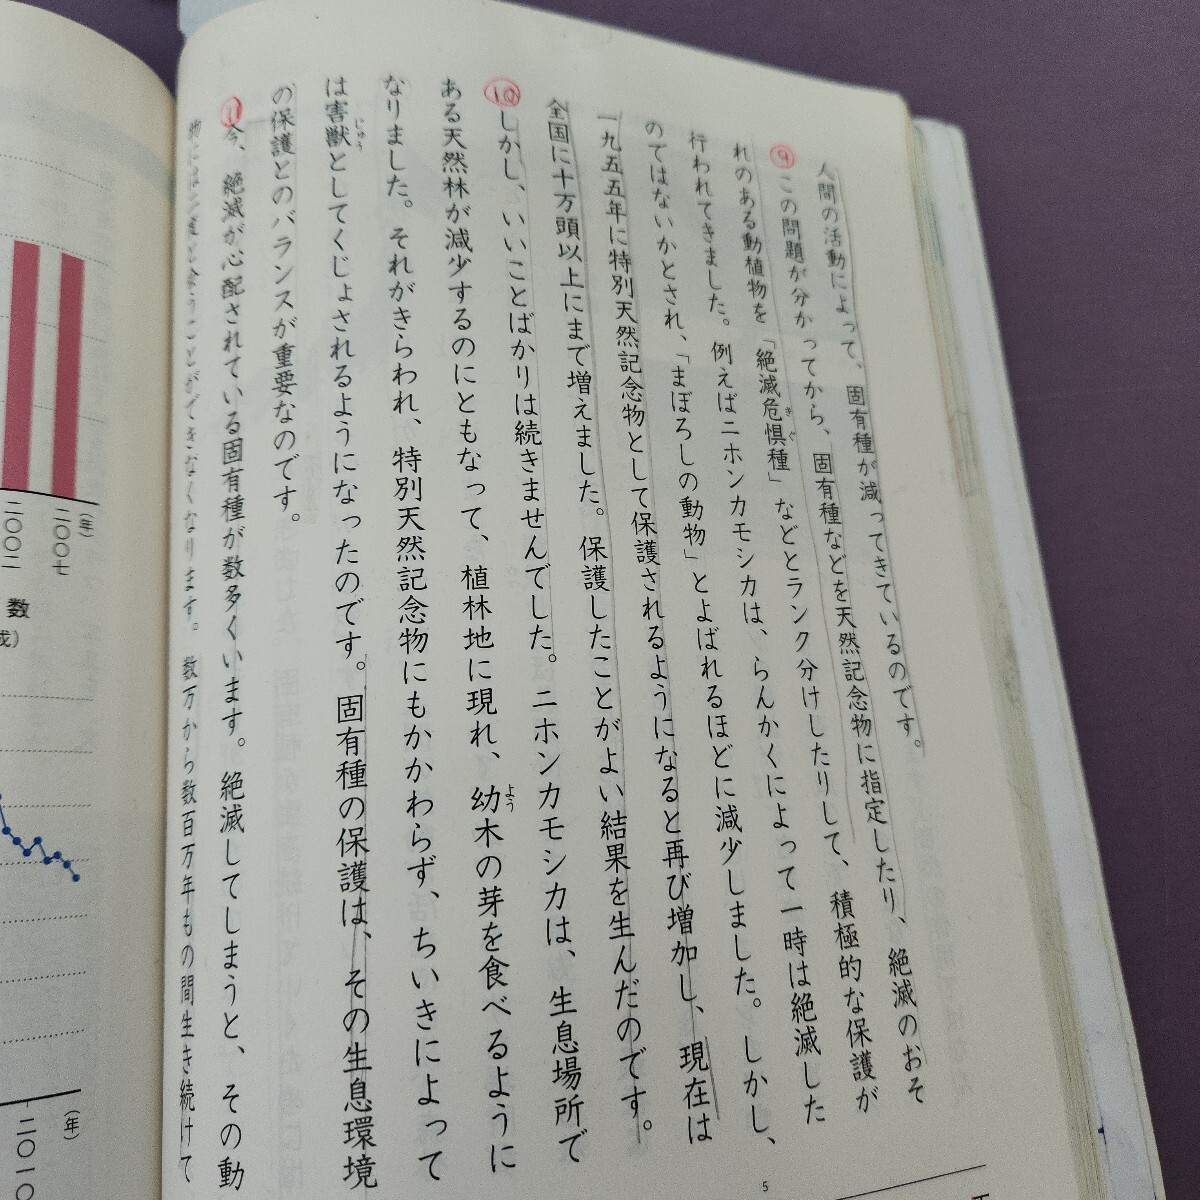 人間の活動によって、固有種が減ってきているのです。
⑨この問題が分かってから、固有種などを天然記念物に指定したり、絶滅のおそ
れのある動植物を「絶滅危惧種」などとランク分けしたりして、積極的な保護が
きぐ
行われてきました。例えばニホンカモシカは、らんかくによって一時は絶滅した
のではないかとされ、「まぼろしの動物」とよばれるほどに減少しました。しかし、
一九五五年に特別天然記念物として保護されるようになると再び増加し、現在は
全国に十万頭以上にまで増えました。保護したことがよい結果を生んだのです。
⑩しかし、いいことばかりは続きませんでした。ニホンカモシカは、生息場所で
ある天然林が減少するのにともなって、植林地に現れ、幼木の芽を食べるように
よう
なりました。それがきらわれ、特別天然記念物にもかかわらず、ちいきによって
は害獣としてくじょされるようになったのです。固有種の保護は、その生息環境
じゅう
の保護とのバランスが重要なのです。
⑪今、絶滅が心配されている固有種が数多くいます。絶滅してしまうと、その動
物には二度と会うことができなくなります。数万から数百万年もの間生き続けて
5
(年)
二〇〇七
二〇〇二
数
成)
(年)
二〇一〇